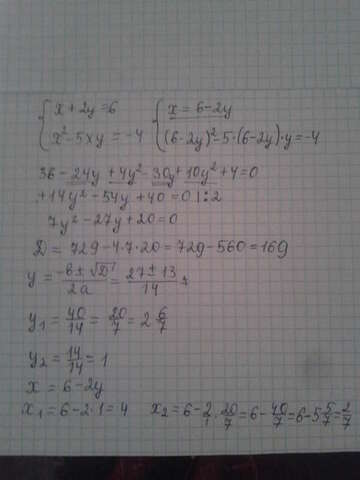 { x + 2y = 6 { x = 6 - 2y
{ x² - 5xy = -4 { (6 - 2y)² - 5·(6-2y)·y = -4
36 - 24y + 4y² - 30y + 10y² + 4 = 0
+14y² - 54y + 40 = 0 |:2
7y² - 27y + 20 = 0
D = 729 - 4·7·20 = 729 - 560 = 169
y = \frac{-b ± √D}{2a} = \frac{27 ± 13}{14}
y₁ = \frac{40}{14} = \frac{20}{7} = 2\frac{6}{7}
y₂ = \frac{14}{14} = 1
x = 6 - 2y
x₁ = 6 - 2·1 = 4 x₂ = 6 - \frac{2}{1}·\frac{20}{7} = 6 - \frac{40}{7} = 6 - 5\frac{5}{7} = \frac{2}{7}